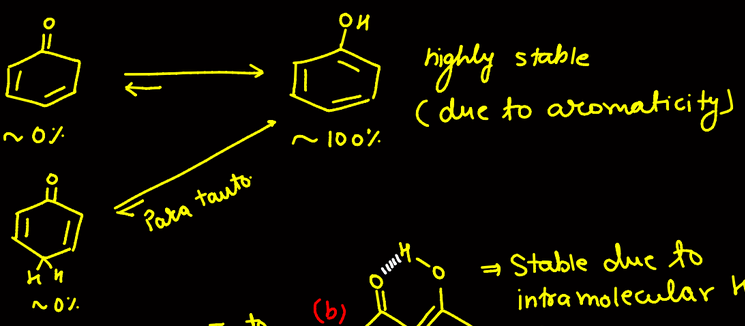 O
OH
highly stable
(due to aromaticity)
~ 0%
~ 100%
O
Para tauto.
H H
~ 0%
H
O
O
⇒ Stable due to
intramolecular H
(b)